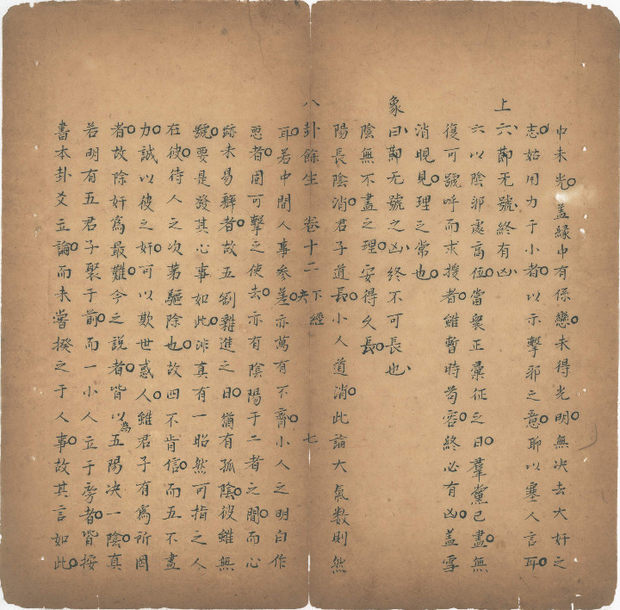 中未光蓋緣中有係戀未得光明無決去大奸之
志始用力于小者以示擊邪之意耶以塞人言耳
上六䣓无號終有凶
六以陰邪處高位當衆正彙征之日羣黨已盡無
復可號呼而求援者雖暫時苟容終必有凶蓋雪
消睍見理之常也
象曰䣓无號之凶終不可長也
陰無不盡之理安得久長
陽長陰消君子道長小人道消此論大氣數則然
八卦餘生 卷十二 下經 夬 七
耳若中間人事參差亦萬有不齊小人之明白作
惡者固可擊之使去亦有陰陽于二者之間而心
跡未易辭者故五劉難進之日猶有孤陰彼雖無
號要是發其心事如此非真有一昭然可指之人
在彼待人之次苐驅除也故四不肯信而五不盡
力誠以彼之奸可以欺世惑人雖君子有為所罔
者故除奸寫最難今之說者皆以為五陽決一陰真
若明有五君子聚于前而一小人立于旁者皆按
書本卦爻立論而未嘗揆之于人事故其言如此